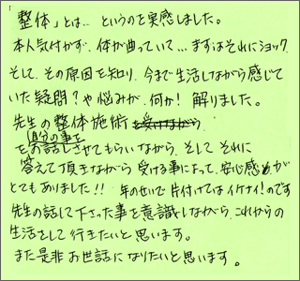 「整体」とは… というのを実感しました。
本人気付かず、体が曲っていて… まずはそれにショック
そして、その原因を知り、今まで生活しながら感じて
いた疑問?や悩みが、何か! 解りました。
先生の整体施術
自分の事を
をお話しさせてもらいながら、そして それに
答えて頂きながら 受ける事によって、安心感が
とてもありました!! 年のせいで 片付けてはイケナイ!のです
先生の話して下さった事を意識しながら、これからの
生活をして行きたいと思います。
また是非お世話になりたいと思います。